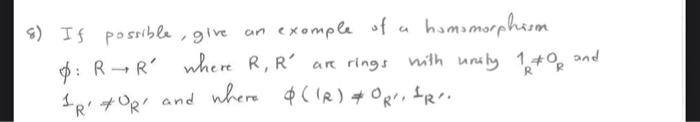 8) If possible, give an example of a homomorphism
φ: R → R′ where R, R′ are rings with unity 1_R ≠ 0_R and
1_R′ ≠ 0_R′ and where φ(1_R) ≠ 0_R′, 1_R′.